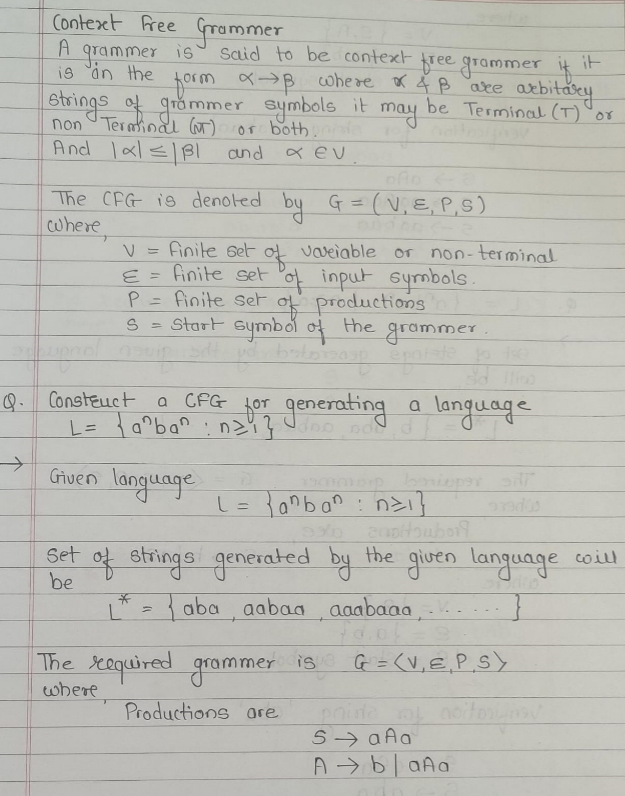 Context Free Grammer
A grammer is said to be context free grammer if it
is in the form α→β where α & β are arbitary
strings of grammer symbols it may be Terminal (T) or
non Terminal (NT) or both.
And |α| ≤ |β| and α ∈ V.
The CFG is denoted by G = (V, Ɛ, P, S)
where,
V = finite set of vareiable or non-terminal
Ɛ = finite set of input symbols.
P = finite set of productions
S = Start symbol of the grammer.
Q. Construct a CFG for generating a language
L = {aⁿbaⁿ : n≥1}
→ Given language
L = {aⁿbaⁿ : n≥1}
Set of strings generated by the given language will
be
L* = {aba, aabaa, aaabaaa, ....... }
The required grammer is G = <V, Ɛ, P, S>
where,
Productions are
S → aAa
A → b | aAa